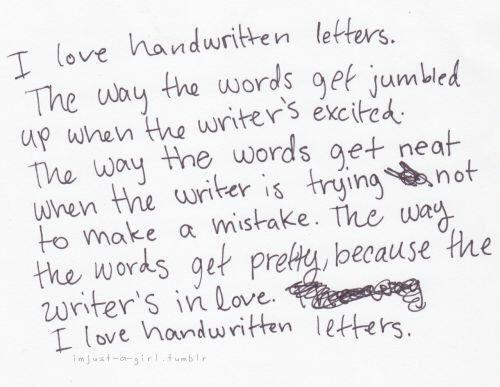 I love handwritten letters.
The way the words get jumbled
up when the writer's excited.
The way the words get neat
when the writer is trying not
to make a mistake. The way
the words get pretty, because the
writer's in love.
I love handwritten letters.
imjust-a-girl.tumblr